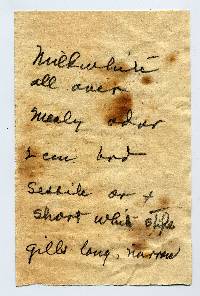 Milk white
all over
Mealy odor
2 cm brd
Sessile or +
short white stipe
gills long, narrow